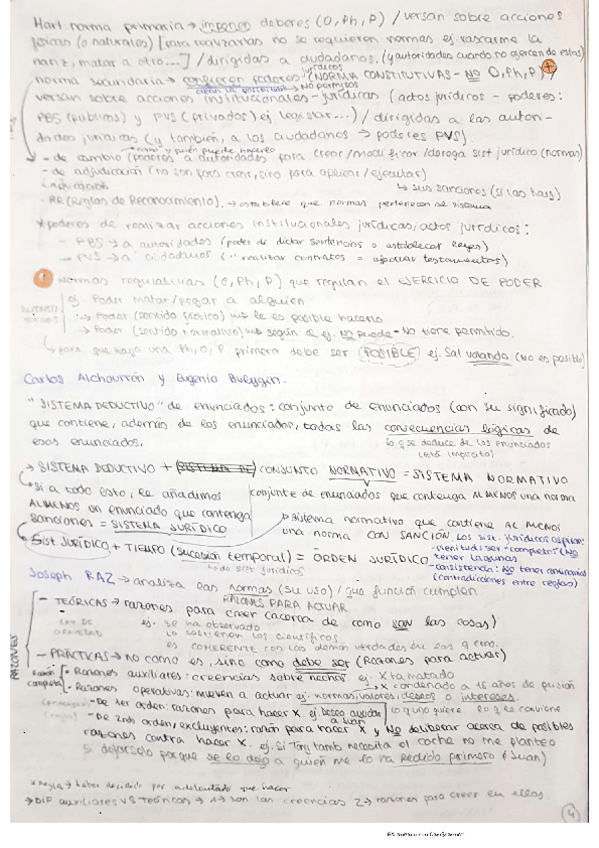 Hart: norma primaria → imponen deberes (O, Ph, P) / versan sobre acciones
físicas (o naturales) [para realizarlas no se requieren normas ej. rascarme la
nariz, matar a otro...] / dirigidas a ciudadanos. (y autoridades cuando no ejercen de estas)
norma secundaria → confieren poderes jurídicos (NORMA CONSTITUTIVAS - NO O, Ph, P) /
→ No permisos
versan sobre acciones institucionales - jurídicas (actos jurídicos - poderes:
PBS (públicos) y PVS (privados) ej legislar...) / dirigidas a las autori-
dades jurídicas (y también, a los ciudadanos → poderes PVS)
→ como y quién puede hacerlo
- de cambio (poderes a autoridades para crear/modificar/deroga sist jurídico (normas)
- de adjudicación (no son para crear, sino para aplicar/ejecutar)
aplicación
→ sus sanciones (si las hay)
- RR (Reglas de Reconocimiento). → establece que normas pertenecen al sistema
* poderes de realizar acciones institucionales jurídicas/actos jurídicos:
- PBS → a autoridades (poder de dictar sentencias o establecer leyes)
- PVS → a ciudadanos (" realizar contratos o ejecutar testamentos)
Normas regulativas (O, Ph, P) que regulan el EJERCICIO DE PODER
ej. Poder matar/pegar a alguien
→ Poder (sentido fáctico) → le es posible hacerlo
→ Poder (sentido normativo) → según de ej. NO puede - No tiene permitido.
→ para que haya una Ph, O, P primero debe ser POSIBLE ej. Sal volando (no es posible)
Carlos Alchourrón y Eugenio Bulygin.
"SISTEMA DEDUCTIVO" de enunciados: conjunto de enunciados (con su significado)
que contiene, además de los enunciados, todas las consecuencias lógicas de
esos enunciados.
lo que se deduce de los enunciados
(está implícito)
→ SISTEMA DEDUCTIVO + CONJUNTO NORMATIVO = SISTEMA NORMATIVO
→ Si a todo esto, le añadimos
conjunto de enunciados que contenga AL MENOS una norma
ALMENOS un enunciado que contenga
sanciones = SISTEMA JURÍDICO
→ Sistema normativo que contiene AL MENOS
una norma CON SANCIÓN
Los sist. jurídicos aspiran:
- plenitud: ser "completos" (NO
tener lagunas
- consistencia: NO tener antinomias
(contradicciones entre reglas)
→ Sist JURÍDICO + TIEMPO (sucesión temporal) = ORDEN JURÍDICO
→ de sist jurídicos
Joseph RAZ → analiza las normas (su uso) / que función cumplen
RAZONES PARA ACTUAR
RAZONES
- TEÓRICAS → razones para creer (acerca de como son las cosas)
ej: se ha observado
lo sostienen los científicos
es COHERENTE con las demás verdades
- PRÁCTICAS → no como es, sino como debe ser (Razones para actuar)
razón
completa
- Razones auxiliares: creencias sobre hechos ej. X ha matado
→ X condenado a 15 años de prisión
- Razones operativas: mueven a actuar ej: normas, valores, deseos o intereses.
lo q uno quiere
lo q le conviene
- De 1er orden: razones para hacer X ej. Deseo ayudar
a Juan
- De 2ndo orden, excluyentes: razón para hacer X y NO deliberar acerca de posibles
razones contra hacer X. ej. Si Tony tamb necesita el coche no me planteo
si dejárselo porque se lo dejo a quien me lo ha pedido primero (Juan)
* regla → haber decidido por adelantado que hacer
→ DIF auxiliares VS teóricas → 1 → son las creencias 2 → razones para creer en ellas.
4